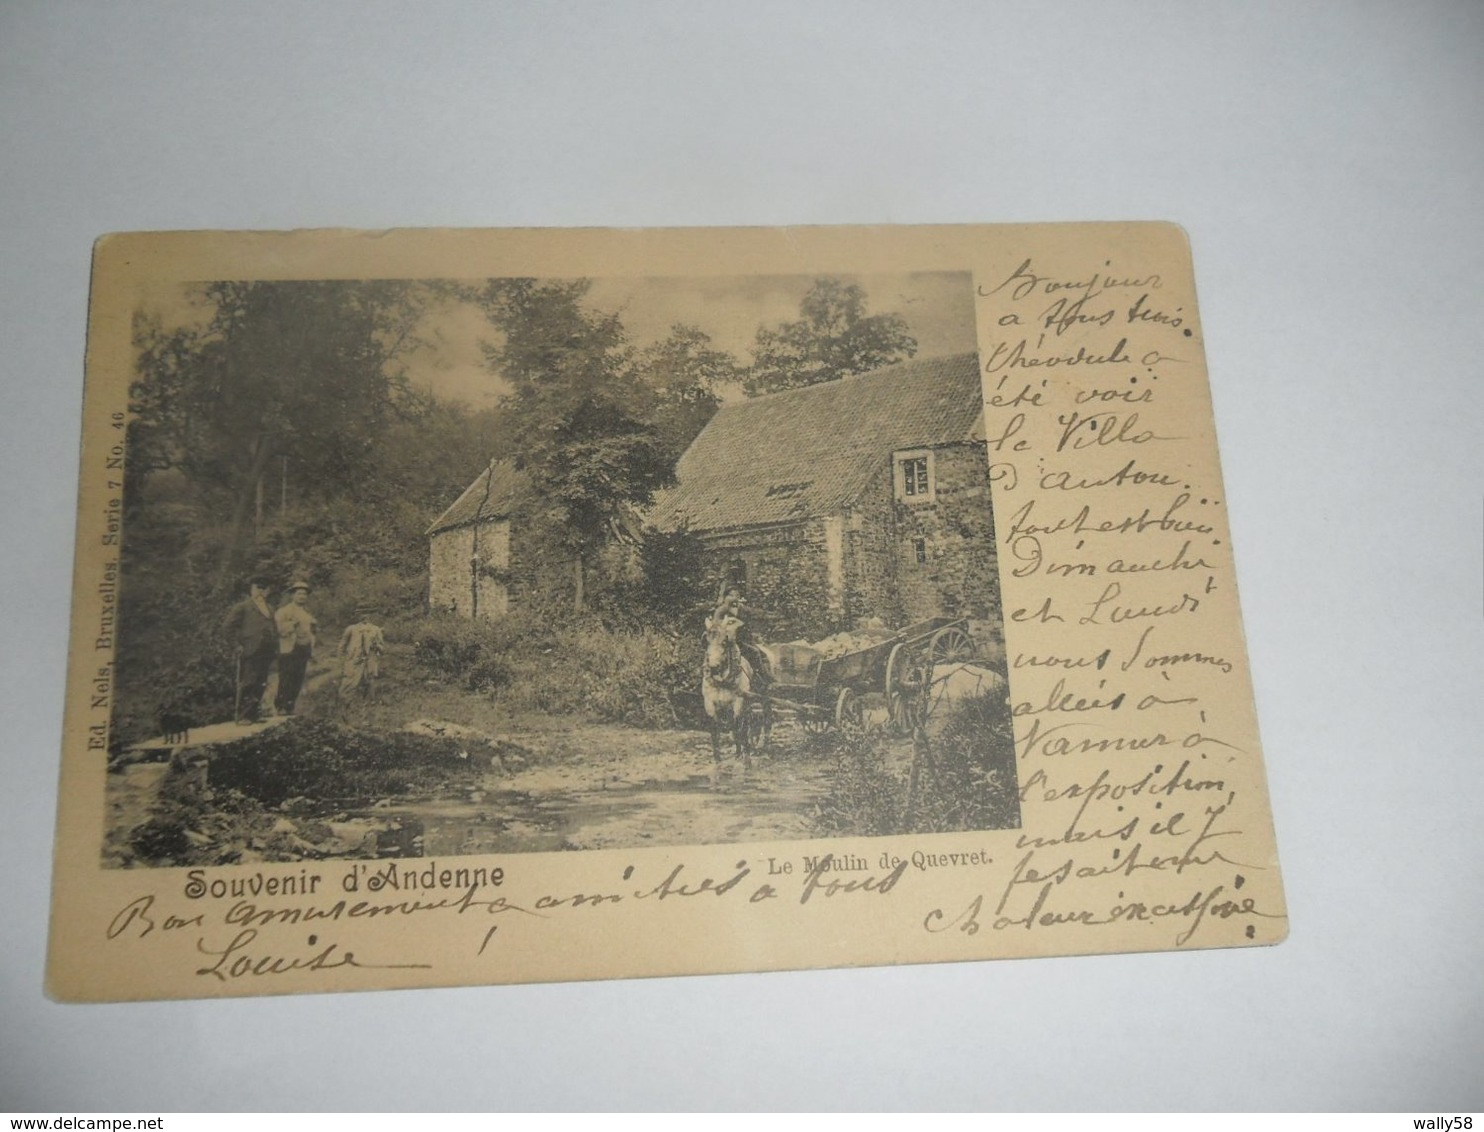 Bonjour
a tous trois.
Théodule a
été voir
la Villa
D'Anton.
tout est bien
Dimanche
et Lundi
nous sommes
allés à
Namur à
l'exposition,
mais il y
fesait une
Chaleur excessive
Ed. Nels, Bruxelles, Serie 7 No. 46
Souvenir d'Andenne
Le Moulin de Quevret.
Bon amusement & amitiés a tous
Louise !
delcampe.net
wally58